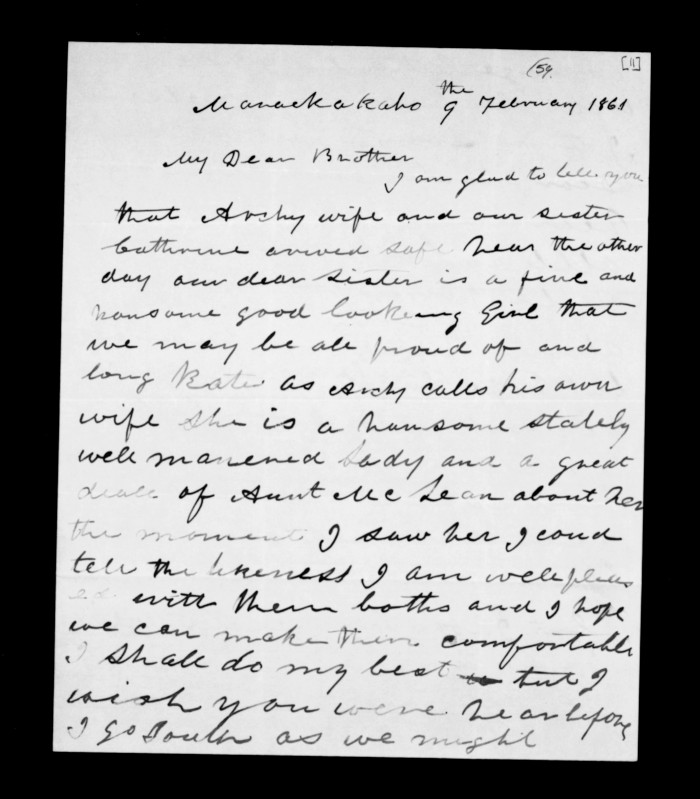 (59.
[11]
Manaekakaho the 9 February 1861
My Dear Brother
I am glad to tell you
that Archy wife and our sister
Cathrine arived safe hear the other
day our dear sister is a fine and
hansome good lookeing Girl that
we may be all proud of and
long Kate as Archy calls his own
wife she is a hansome stately
well manered Lady and a great
deale of Aunt Mc Lean about her
the moment I saw her I coud
tell the likeness I am well pleas
ed with them boths and I hope
we can make them comfortable
I shall do my best but I
wish you were hear before
I go South as we might